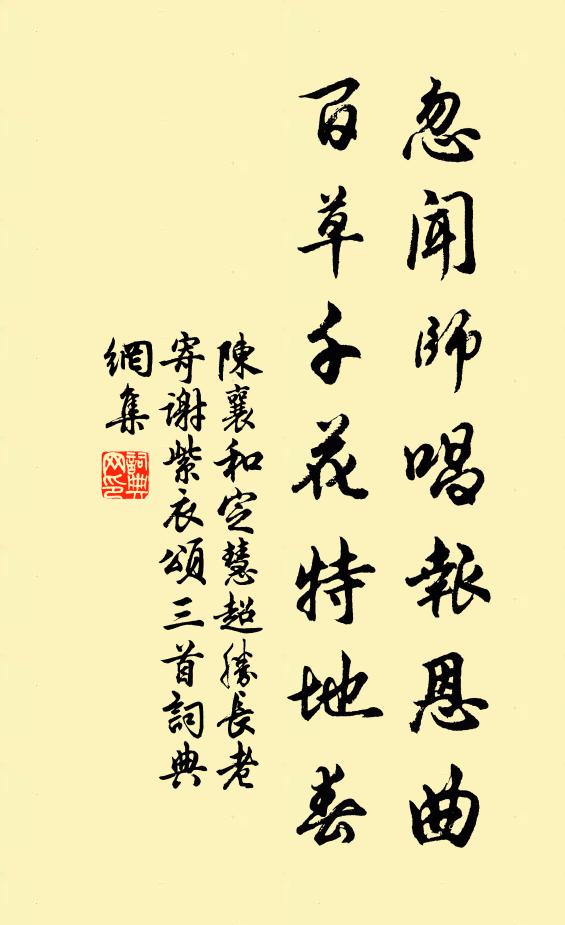 忽聞師唱報恩曲
百草千花特地春
陳襄和定慧超勝長老
寄謝紫衣頌三首詞典
網集
詞典網印